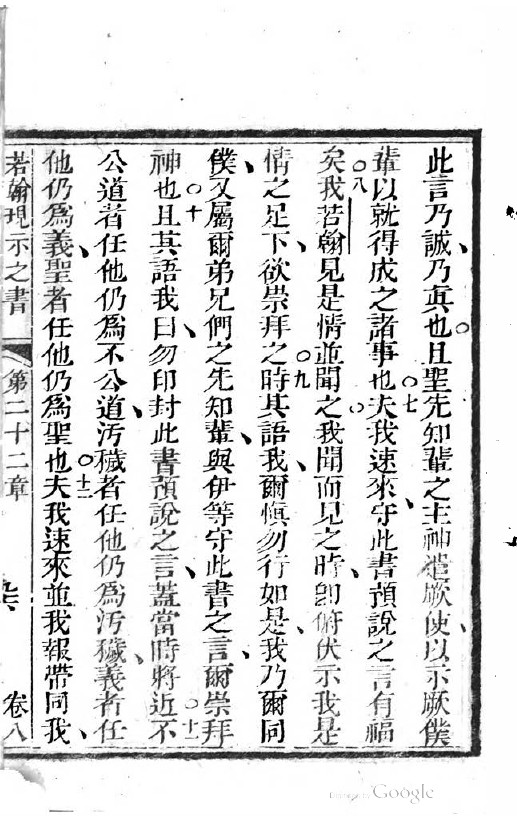 此言乃誠乃眞也○且聖先知輩之主神遣厥使以示厥僕
輩以就得成之諸事也○七夫我速來守此書預說之言有福
矣○八我若翰見是情並聞之○我聞而見之時卽俯伏示我是
情之足下欲崇拜之時○九其語我爾愼勿行如是我乃爾同
僕又屬爾弟兄們之先知輩與伊等守此書之言爾崇拜
神也○十且其語我曰勿印封此書預說之言蓋當時將近○十一不
公道者任他仍爲不公道汚穢者任他仍爲汚穢義者任
他仍爲義聖者任他仍爲聖也○十二夫我速來並我報帶同我
若翰現示之書 第二十二章 卷八
Digitized by Google